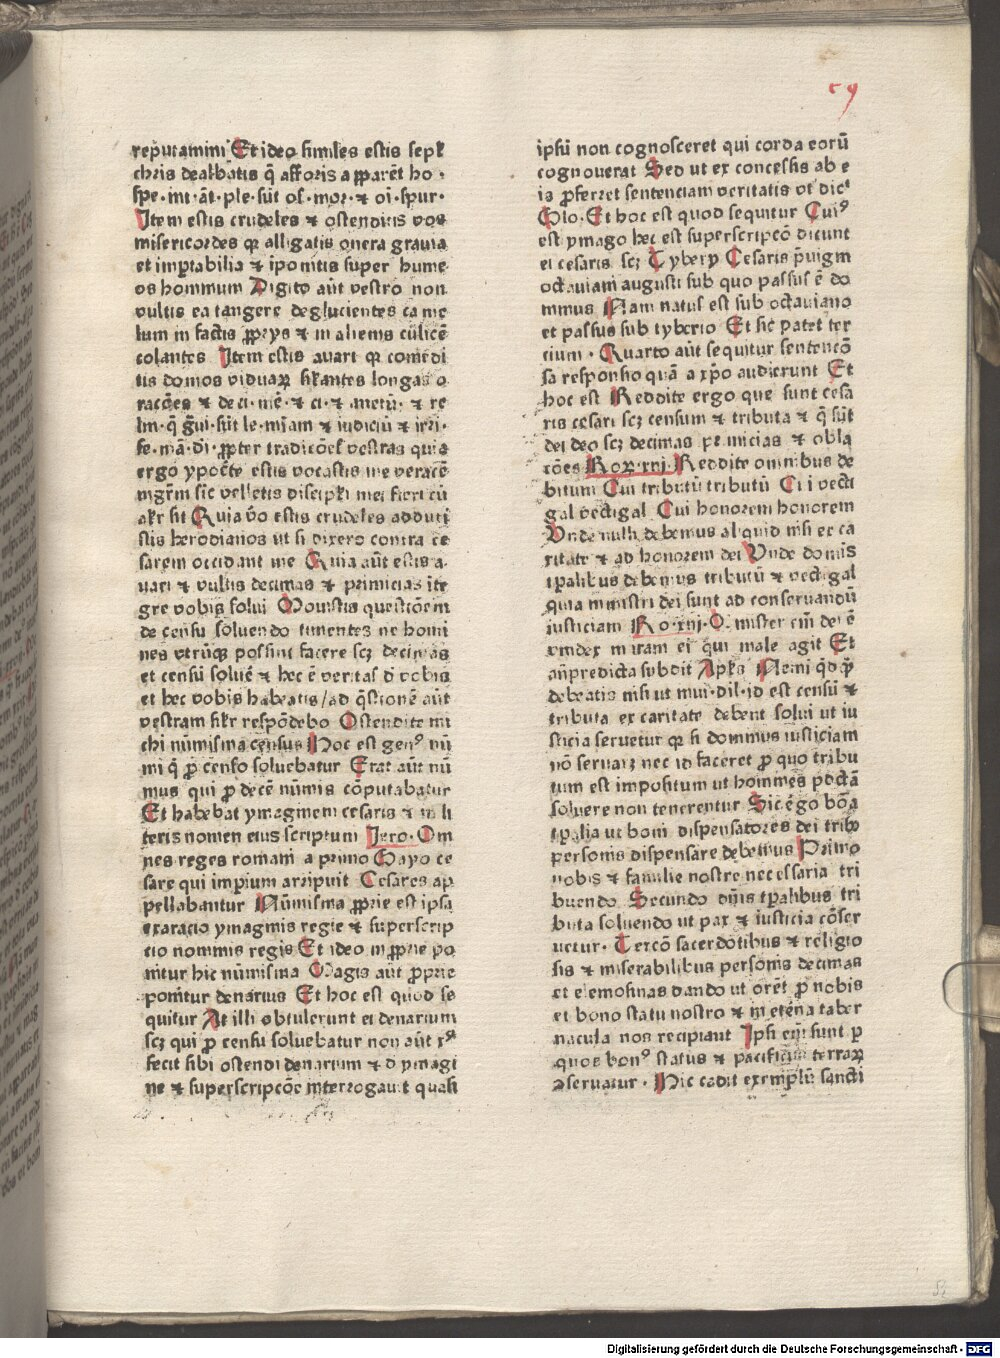 59
reputamini Et ideo similes estis sepl
chris dealbatis q̄ afforis a pparēt ho ·
spe · int · āt · ple · sūt os · mor · ⁊ oī · spur ·
Item estis crudeles ⁊ ostenditis vos
misericordes qꝛ alligatis onera grauia
et imptabilia ⁊ ipōnitis super hume
os hominum Digito aūt vestro non
vultis ea tangere deglucientes ca me
lum in factis pprijs ⁊ in alienis cūlicē
colantes Item estis auari qꝛ comedi
tis domos viduaꝝ sikantes longas o
racōes ⁊ deci · mē · ⁊ ci · ⁊ metū · ⁊ re
lin · q̄ gͣui · sūt le · mͥam ⁊ iudiciū ⁊
fe · ppter tradicōes vestras quia
ergo ypocͥte estis vocastis me veracē
mgͥm sic velletis discipli mei fieri cū
akr sit Quia ꝟo estis crudeles adduxi
stis herodianos ut si dixero contra ce
sarem occidant me Quia aūt estis a
uari ⁊ vultis decimas ⁊ primicias īte
gre vobis solui Mouistis questiōem
de censu soluendo timentes ne homi
nes vtrūqꝫ possint facere scꝫ decimas
et censū soluē ⁊ hec ē veritas ꝙ vobis
et hec vobis habeatis / ad q̄stionē aūt
vestram sikr respōdebo Ostendite mi
chi nūmisma census Hoc est genꝰ nū
mi q̄ ꝓ censo soluebatur Erat aūt nū
mus qui ꝓ decē nūmis cōputabatur
Et habebat ymaginem cesaris ⁊ in li
teris nomen eius scriptum Jero · Om
nes reges romani a primo Gayo ce
sare qui imꝑium arripuit Cesares ap
pellabantur Nūmisma ꝓprie est ipsa
exaracio ymaginis regie ⁊ superscrip
cio nominis regis Et ideo in ꝓprie po
nitur hic nūmisma Magis aūt ꝓprie
ponitur denarius Et hoc est quod se
quitur At illi obtulerunt ei denarium
scꝫ qui ꝓ censu soluebatur non aūt xꝰ
fecit sibi ostendi denarium ⁊ d ymagi
ne ⁊ superscripcōe interrogauit quasi
ipsū non cognosceret qui corda eorū
cognouerat Sed ut ex concessis ab e
is ꝓferret sentenciam veritatis vt dicͭ
Glo · Et hoc est quod sequitur Cuiꝰ
est ymago hec est superscripcō dicunt
ei cesaris scꝫ Tyberij Cesaris p̄uigni
octauiani augusti sub quo passus ē do
minus Nam natus est sub octauiano
et passus sub tyberio Et sic patet ter
cium · Quarto aūt sequitur sentencō
sa responsio quā a xp̄o audierunt Et
hoc est Reddite ergo que sunt cesa
ris cesari scꝫ censum ⁊ tributa ⁊ q̄ sūt
dei deo scꝫ decimas primicias ⁊ obla
cōes Roꝝ · xiij · Reddite omnibus de
bitum Cui tributū tributū Cui vecti
gal vectigal Cui honorem honorem
Vnde nulli debemus aliquid nisi ex ca
ritate ⁊ ad honorem dei Vnde domīs
tpalibus debemus tributū ⁊ vectigal
quia ministri dei sunt ad conseruandū
iusticiam Ro · xiij · O minister eīn dei ē
vindex in iram ei qui male agit Et
an̄predicta subdit Aplꝰs Nemi qͥdqͣ
debeatis nisi ut inui · dil · id est censū ⁊
tributa ex caritate debent solui ut iu
sticia seruetur qꝛ si dominus iusticiam
nō seruaꝫ nec id faceret ꝓ quo tribu
tum est impositum ut homines pdictā
soluere non tenerentur Sic ergo bōa
tpalia ut boni dispensatores dei tribꝰ
personis dispensare debemus Primo
nobis ⁊ familie nostre necessaria tri
buendo Secundo dn̄is tpalibus tri
buta soluendo ut pax ⁊ iusticia cōser
uetur · Tercō sacerdotibus ⁊ religio
sis ⁊ miserabilibus personis decimas
et elemosinas dando ut orēt ꝓ nobis
et bono statu nostro ⁊ in etēna taber
nacula nos recipiant Ipsi eīn sunt ꝑ
quos bonꝰ status ⁊ pacificus terraꝝ
ꝯseruatur · Hic cadit exemplū sancti
Digitalisierung gefördert durch die Deutsche Forschungsgemeinschaft - DFG